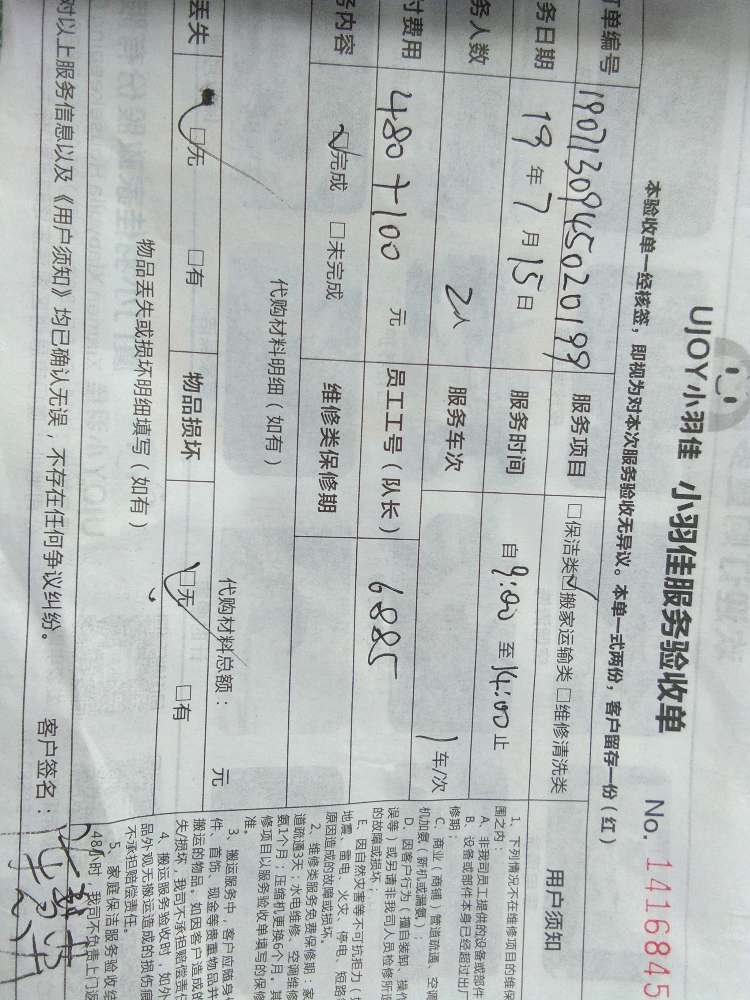 UJOY小羽佳 小羽佳服务验收单 No. 1416845
本验收单一经核签，即视为对本次服务验收无异议。本单一式两份，客户留存一份（红）
订单编号 1907130945020199 服务项目 □保洁类 ☑搬家运输类 □维修清洗类
务日期 19年7月15日 服务时间 自9:00至14:00止
务人数 2人 服务车次 1车/次
付费用 480+100 元 员工工号（队长） 6885
务内容 ☑完成 □未完成 维修类保修期
代购材料明细（如有） 代购材料总额： 元
丢失 ☑无 □有 物品损坏 ☑无 □有
物品丢失或损坏明细填写（如有）
对以上服务信息以及《用户须知》均已确认无误，不存在任何争议纠纷。 客户签名：
用户须知
1、下列情况不在维修项目的维保
围之内：
A、非我司员工提供的设备或部件
B、设备或部件本身已经超过出厂
修期；
C、商业（商铺）管道疏通、空调
机加氨（新机或漏氨）
D、因客户行为（擅自装卸、操作
误等）或另请非我司人员检修所造
的故障或损坏；
E、因自然灾害等不可抗拒力（如
地震、雷电、火灾、停电、短路等
原因造成的故障或损坏。
2、维修类服务免费保修期：家
道疏通3天；水电维修、空调维修
氨1个月；压缩机更换6个月，其
修项目以服务验收单填写的保修
准。
3、搬运服务中，客户应随身
件、首饰、现金等贵重物品并
搬运的物品。如因客户造成的
失/损坏，我司不承担赔偿责任
4、搬运服务验收时，如外
品外观无搬运造成的损伤痕
不承担赔偿责任。
5、家庭保洁服务验收结
48小时，我司不负责上门返